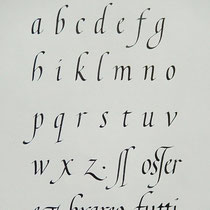 a b c d e f g
h i k l m n o
p q r s t u v
w x z . ſſ oſſer
tutti